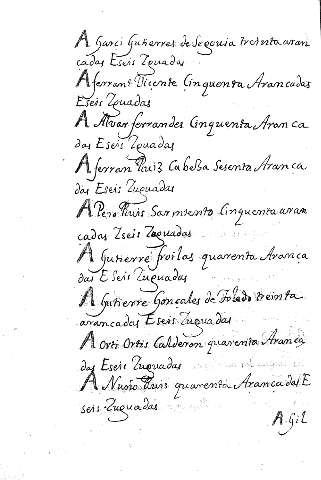 A Garci Gutierres de Segouia treinta aran
cadas Eseis Zguadas
A ferrant Vicente Cinquenta Arancadas
Eseis Zguadas
A Alvar ferrandes Cinquenta Aranca
das Eseis Zguadas
A ferran Ruiz Cabeßa Sesenta Aranca
das Eseis Zuguadas
A Pero Ruis Sarmiento Cinquenta aran
cadas Zseis Zuguadas
A Gutierre froilas quarenta Aranca
das E Seis Zuguadas
A Gutierre Gonçales de Toledo treinta
arancadas Eseis Zuguadas
A Orti Ortis Calderon quarenta Aranca
das Eseis Zuguadas
A Nuño Ruis quarenta Arancadas E
seis Zuguadas
A Gil